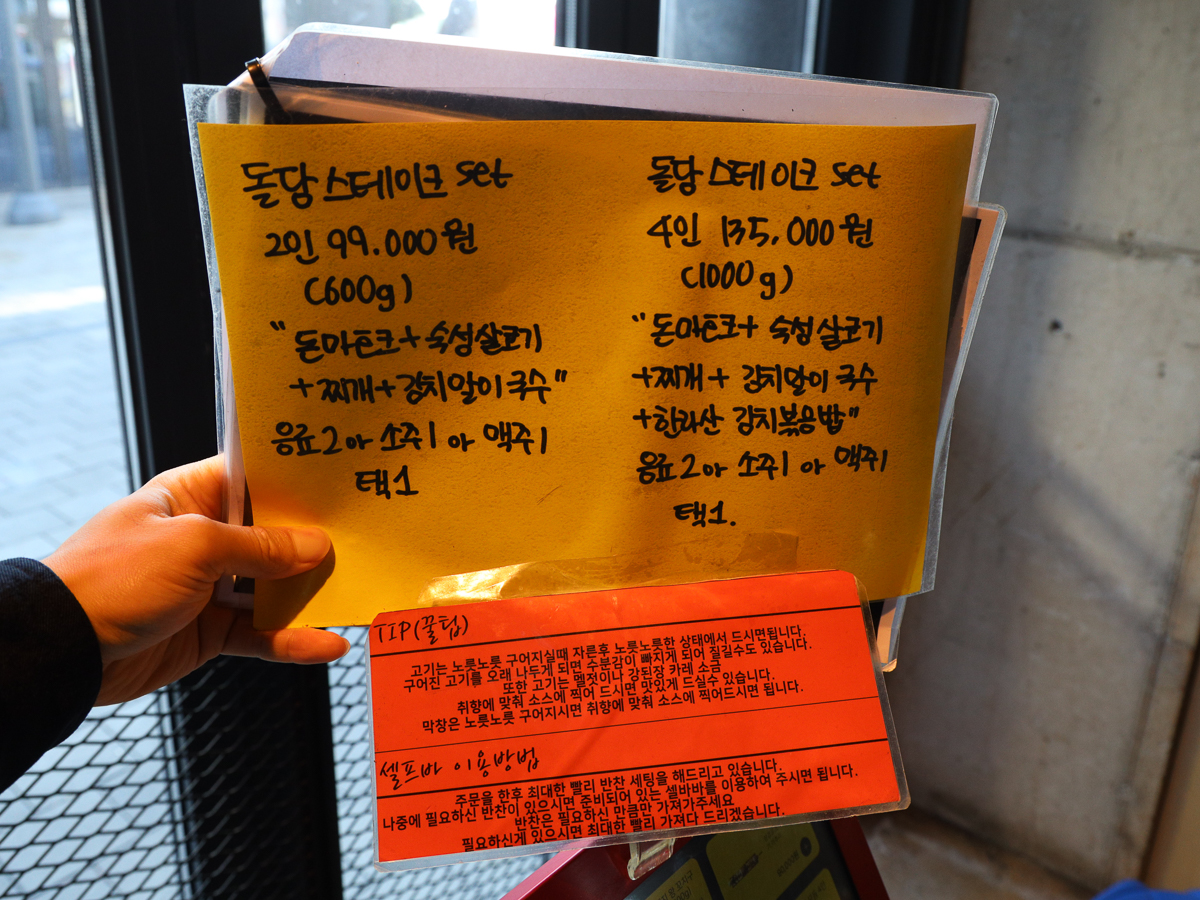 돌담 스테이크 set
2인 99.000원
(600g)
"돈마호크+숙성살코기
+찌개+김치말이국수"
음료2 or 소주1 or 맥주1
택1
돌담 스테이크 set
4인 135,000원
(1000g)
"돈마호크+숙성살코기
+찌개+김치말이국수
+한라산 김치볶음밥"
음료2 or 소주1 or 맥주1
택1.
TIP(꿀팁)
고기는 노릇노릇 구어지실때 자른후 노릇노릇한 상태에서 드시면됩니다.
구어진 고기를 오래 나두게 되면 수분감이 빠지게 되어 질길수도 있습니다.
또한 고기는 멜젓이나 강된장 카레 소금
취향에 맞춰 소스에 찍어 드시면 맛있게 드실수 있습니다.
막창은 노릇노릇 구어지시면 취향에 맞춰 소스에 찍어드시면 됩니다.
셀프바 이용방법
주문을 한후 최대한 빨리 반찬 세팅을 해드리고 있습니다.
나중에 필요하신 반찬이 있으시면 준비되어 있는 셀바바를 이용하여 주시면 됩니다.
반찬은 필요하신 만큼만 가져가주세요
필요하신게 있으시면 최대한 빨리 가져다 드리겠습니다.